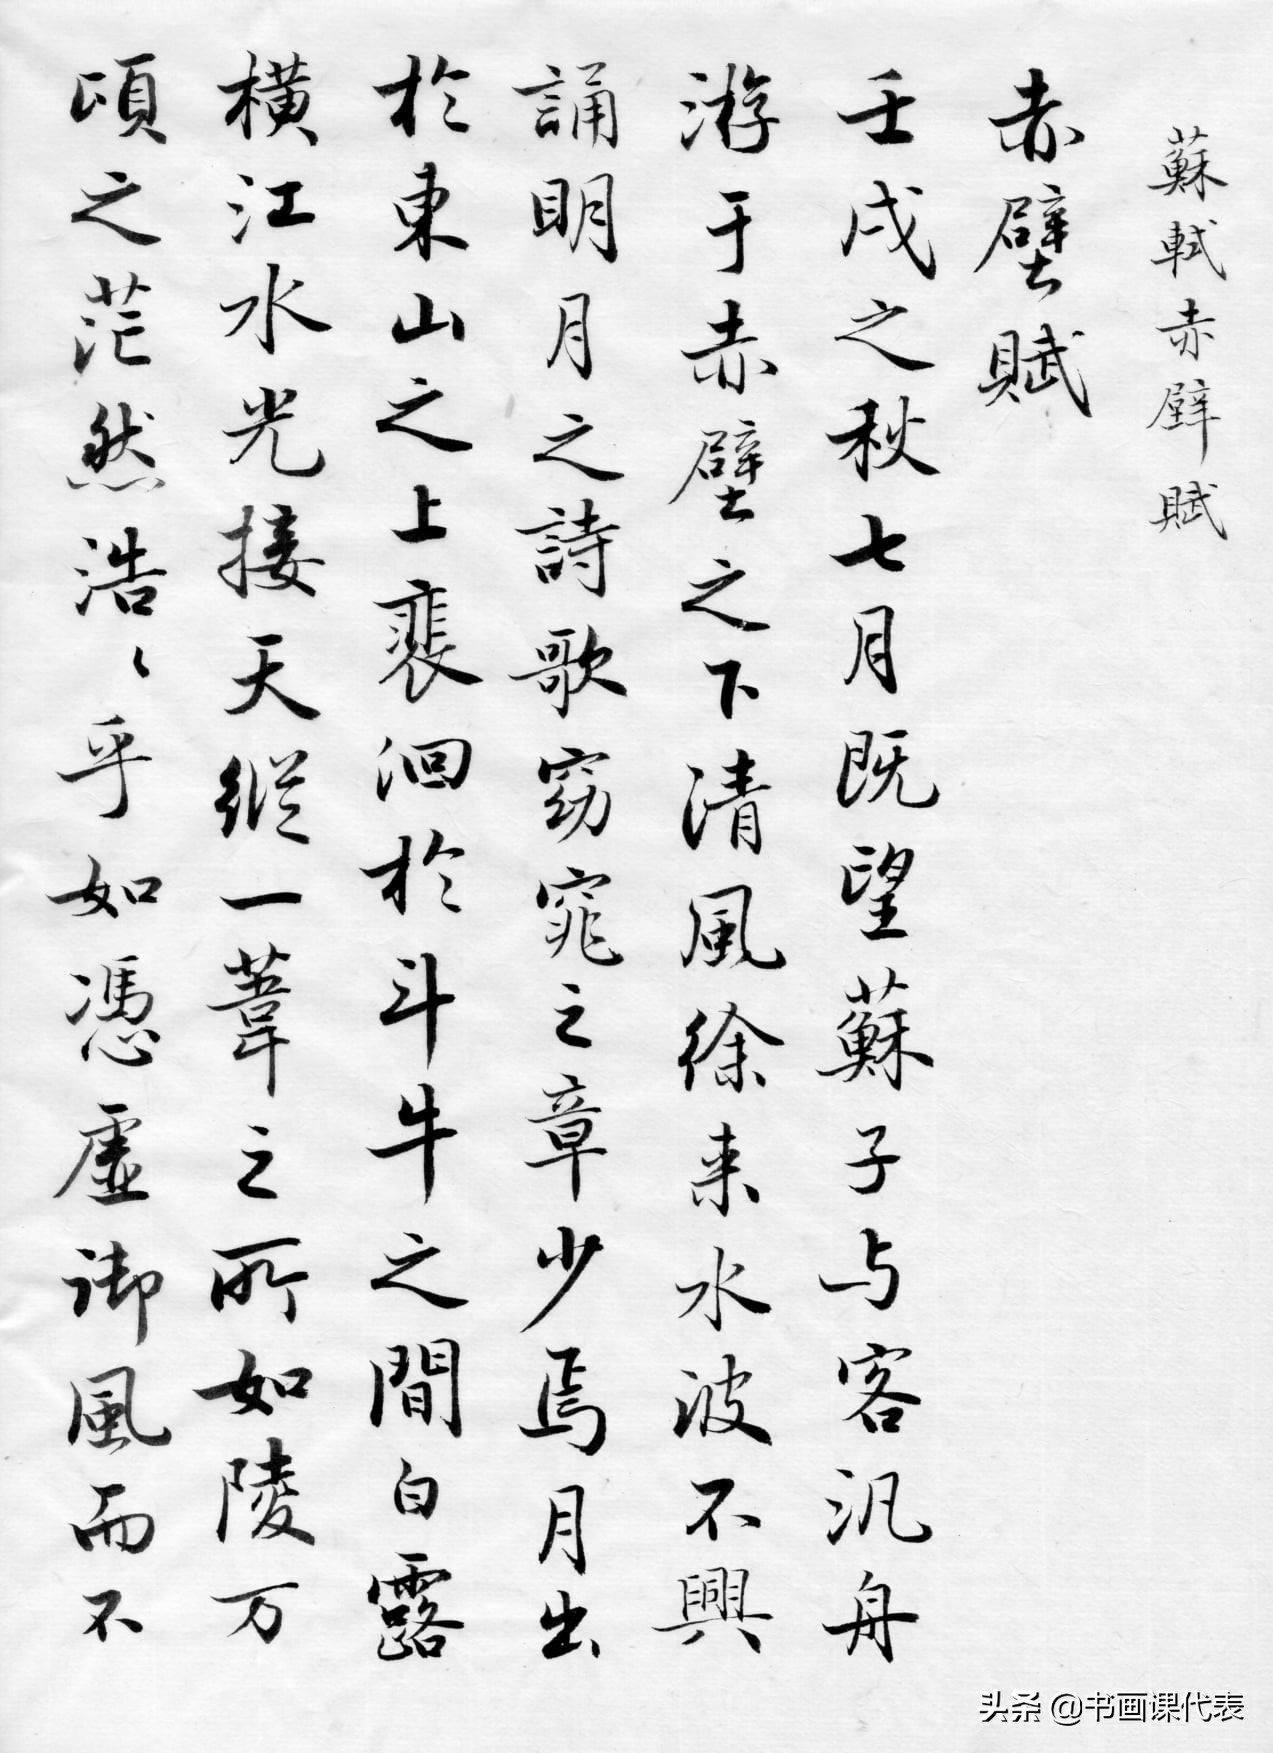 蘇軾赤壁賦
赤壁賦
壬戌之秋七月既望蘇子与客汎舟
游于赤壁之下清風徐来水波不興
誦明月之詩歌窈窕之章少焉月出
於東山之上裴洄於斗牛之間白露
橫江水光接天縱一葦之所如陵万
頃之茫然浩〻乎如馮虛御風而不
头条 @书画课代表